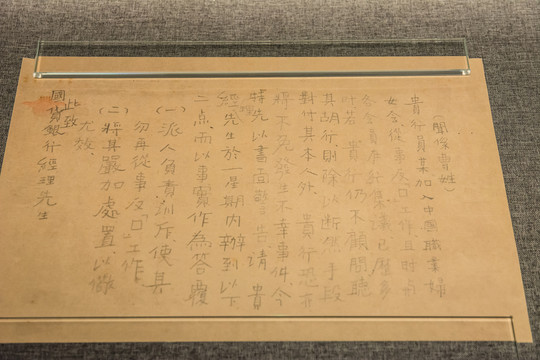 （關係貴姓）
貴行員某加入中國職業婦
女會，從事反口工作，且時有
会員存計集議，已歷多
時，若貴行仍不顧問聽
其胡行，則除以斷然手段
對付其本人外，貴行恐亦
將不免發生不幸事件，今
特先以書面警告，請貴
經理先生於一星期內辦到以下
二点，而以事實作為答覆
（一）派人負責訓斥，使其
勿再從事反「口」工作，
（二）將其嚴加處置，以儆
尤效，
此致
國貨銀行經理先生